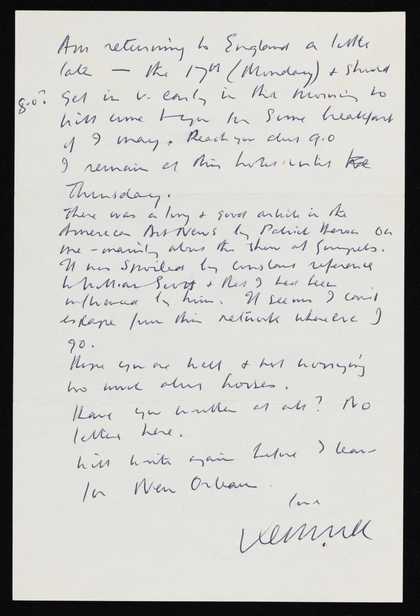 Am returning to England a little
late — the 17th (Monday) & should
9.0? get in v. early in the morning so
will come to you for some breakfast
if I may. Reach you abt 9.0
I remain at this hotel until
Thursday.
There was a long & good article in the
American Art News by Patrick Heron on
me – mainly about the show at Gimpels.
It was spoiled by constant reference
to William Scott & that I had been
influenced by him. It seems I can't
escape from this network wherever I
go.
Hope you are well & not worrying
too much about horses.
Have you written at all? No
letters here.
Will write again before I leave
for New Orleans.
love